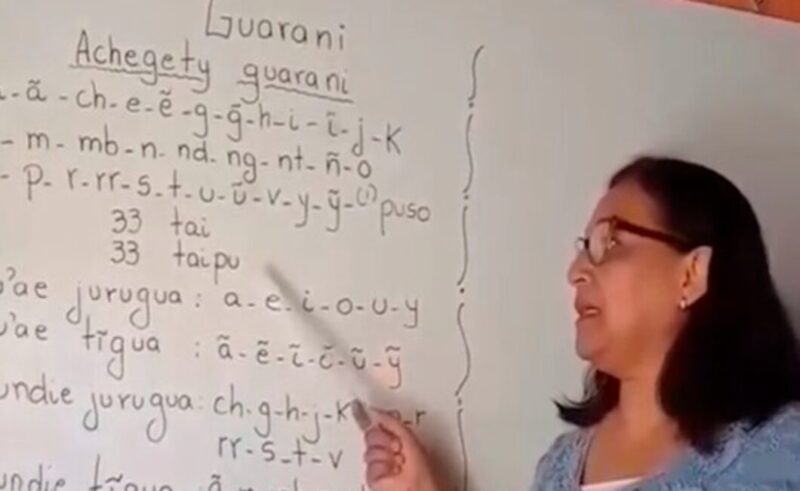 Guarani
Achegety guarani
- ã - ch - e - ẽ - g - g̃ - h - i - ĩ - j - K
- m - mb - n - nd - ng - nt - ñ - o
- p - r - rr - s - t - u - ũ - v - y - ỹ - (') puso
33 tai
33 taipu
'ae jurugua : a - e - i - o - u - y
'ae tĩgua : ã - ẽ - ĩ - õ - ũ - ỹ
undie jurugua: ch - g - h - j - K - r
rr - s - t - v
undie tĩgua